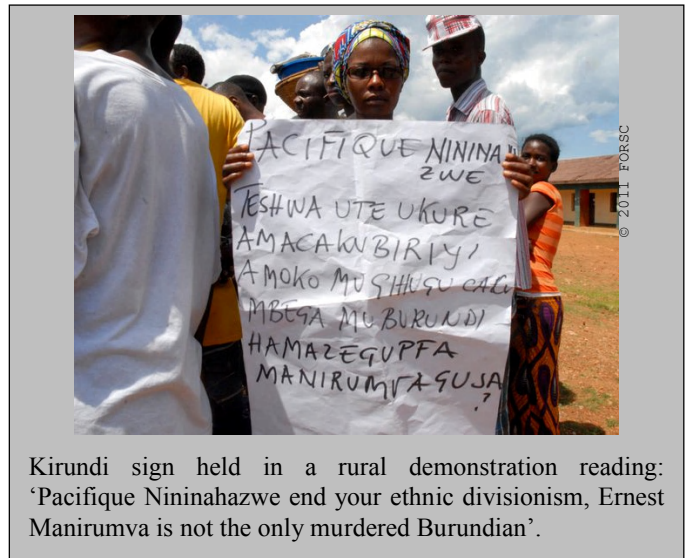 PACIFIQUE NININA
ZWE
TESHWA UTE UKURE
AMACAKUBIRIYI
AMOKO MUGIHUGU CACU
MBEGA MUBURUNDI
HAMAZEGUPFA
MANIRUMVAGUSA
?
© 2011 FORSC
Kirundi sign held in a rural demonstration reading:
‘Pacifique Nininahazwe end your ethnic divisionism, Ernest
Manirumva is not the only murdered Burundian’.